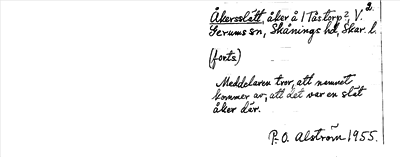 2.
Åkersslätt, åker å 1 Tåstorp?, V.
Gerums sn, Skånings hd, Skar. l.
(forts)
Meddelaren tror, att namnet
kommer av, att det var en slät
åker där.
P. O. Alström 1955.